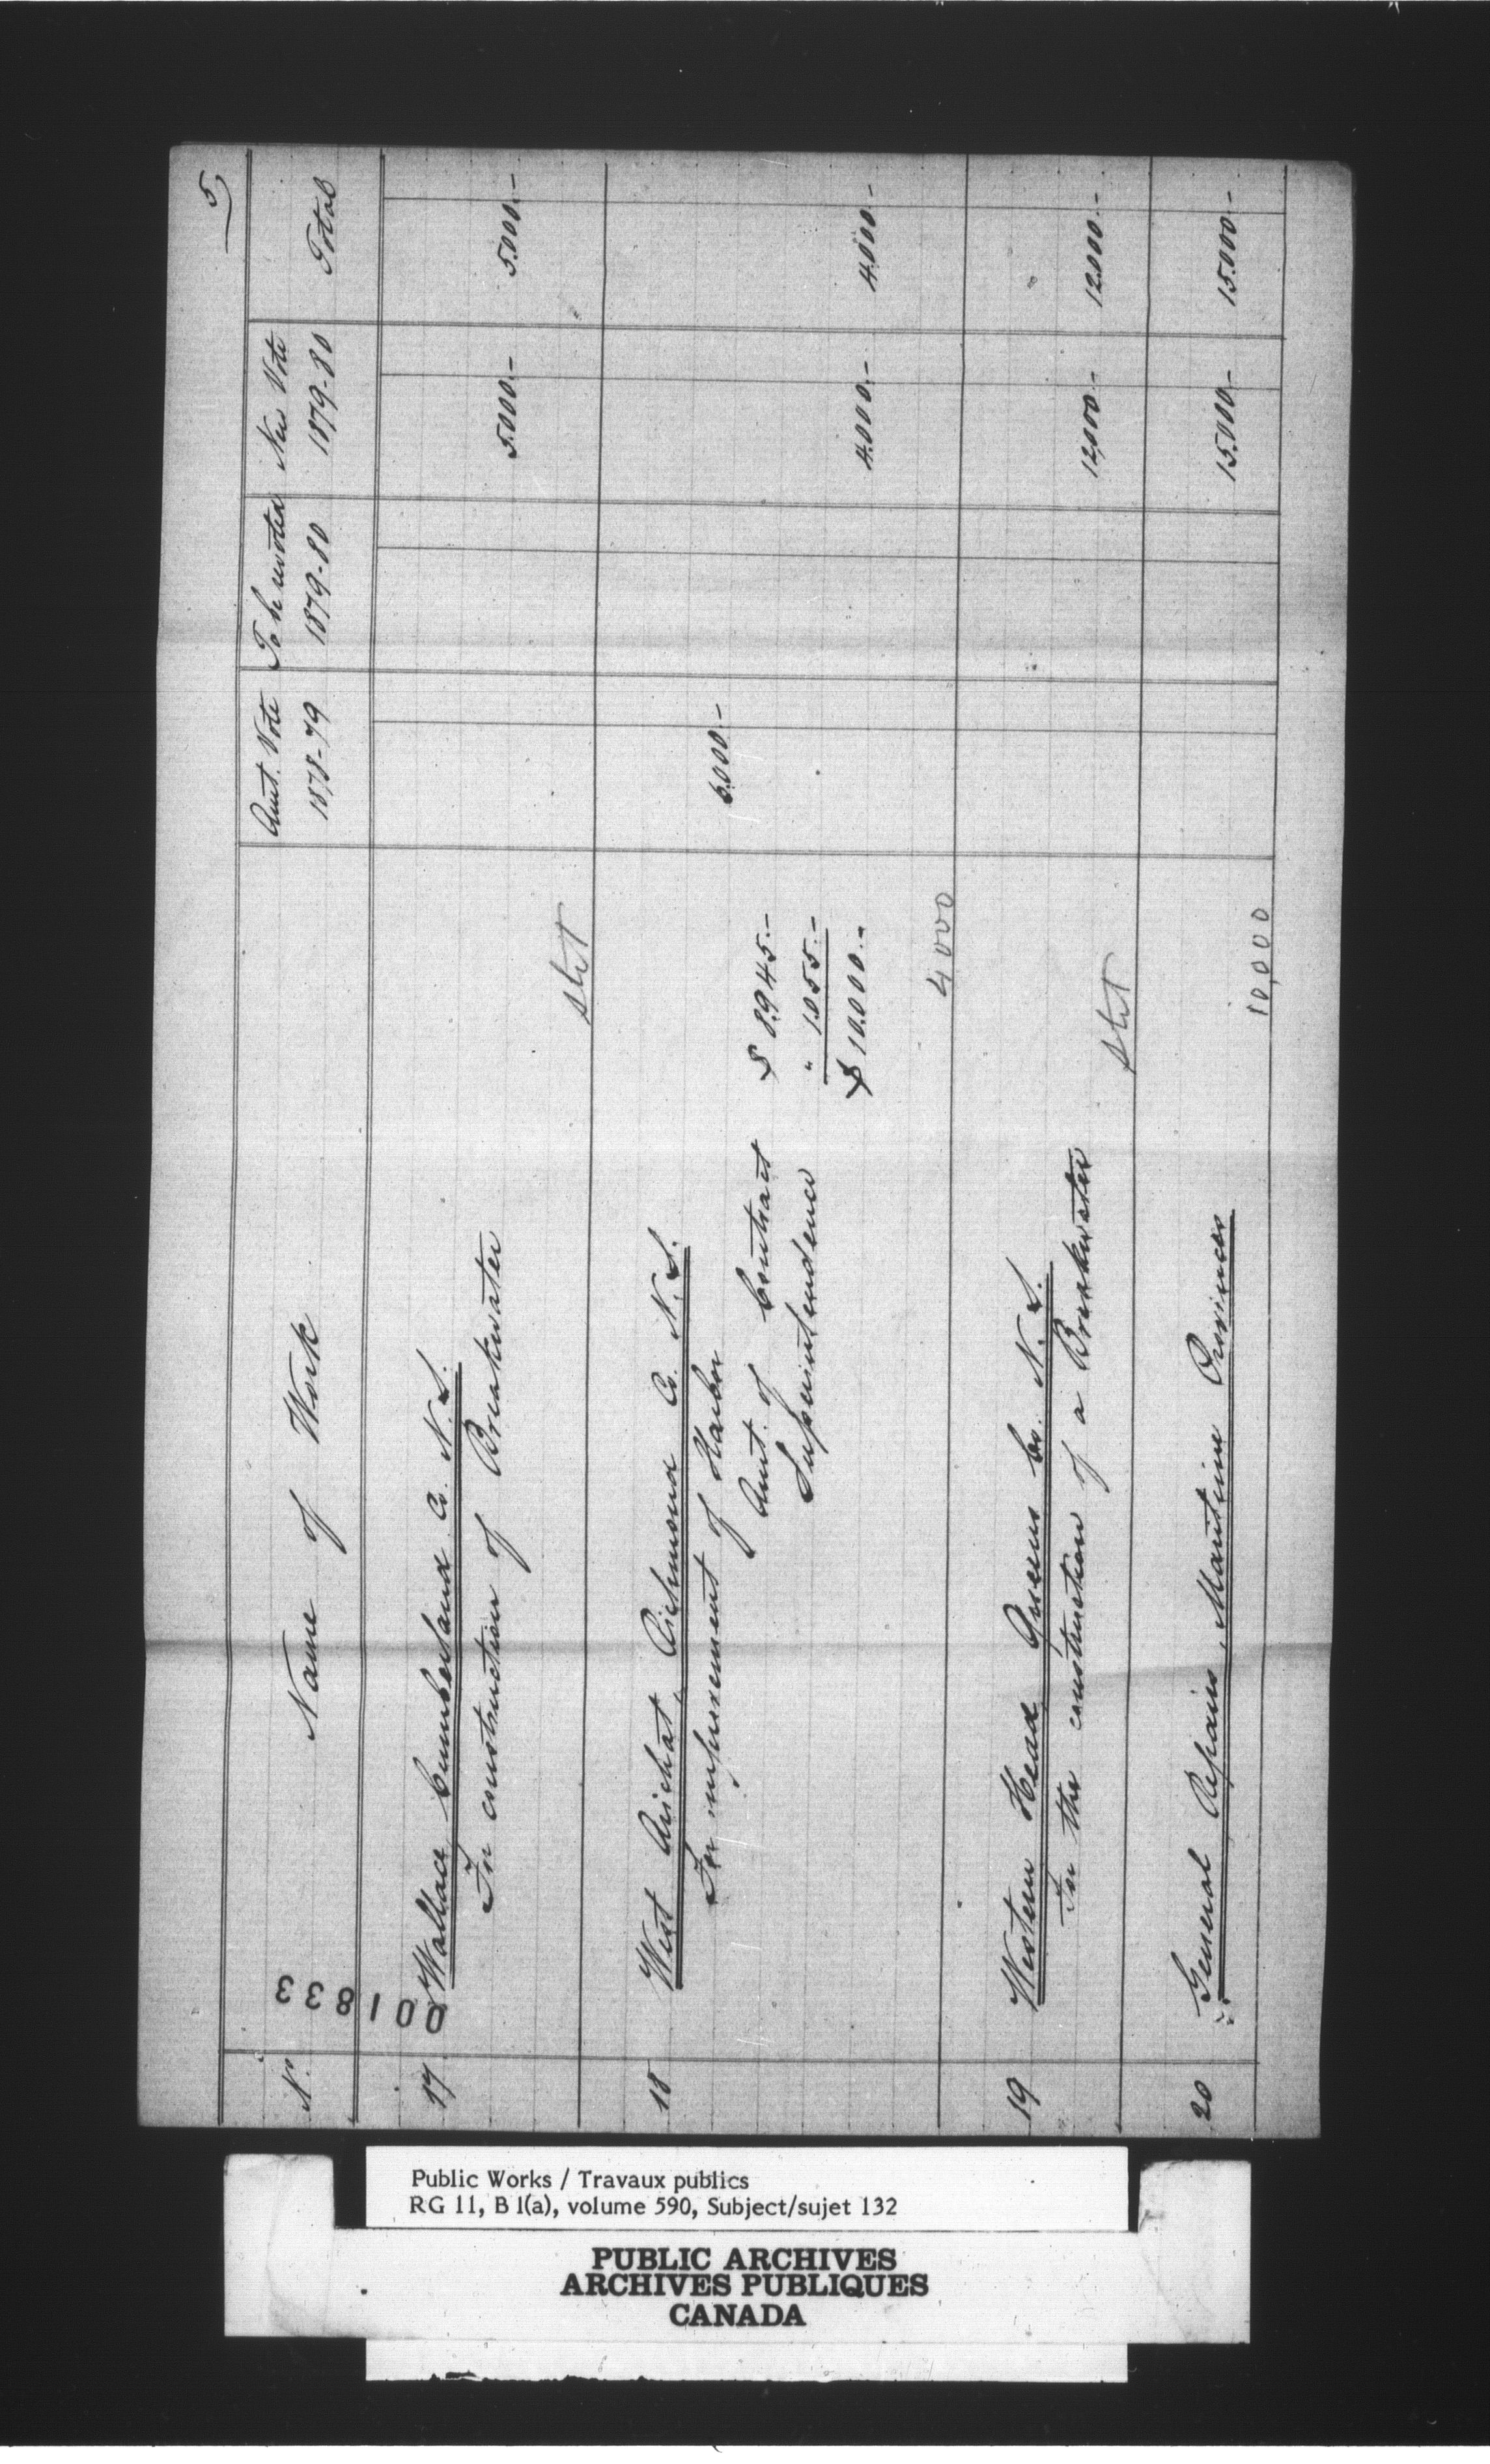 5
No. Name of Work Amt. Vote 1878-79 To be revoted 1879-80 New Vote 1879-80 Total
001833
17 Wallace, Cumberland Co. N.S.
For construction of Breakwater 5.000.- 5.000.-
stet
18 West Arichat, Richmond Co. N.S.
For improvement of Harbor 6.000.-
Amt. of Contract $ 8,945.-
Superintendence " 1.055.-
$ 10.000.- 4.000.- 4.000.-
4000
19 Western Head Queens Co. N.S.
For the construction of a Breakwater 12,000.- 12.000.-
stet
20 General Repairs, Maritime Provinces 15.000.- 15.000.-
10,000
Public Works / Travaux publics
RG 11, B 1(a), volume 590, Subject/sujet 132
PUBLIC ARCHIVES
ARCHIVES PUBLIQUES
CANADA